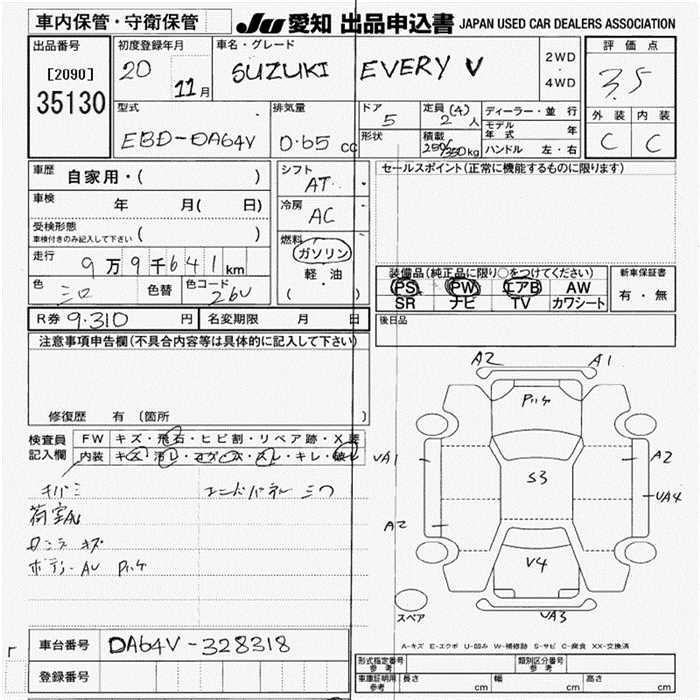 車内保管・守衛保管
JU 愛知 出品申込書 JAPAN USED CAR DEALERS ASSOCIATION
出品番号
[2090]
35130
初度登録年月
20 11月
車名・グレード
SUZUKI EVERY V
2WD
4WD
評価点
3.5
外装 内装
C C
型式
EBD-DA64V
排気量
0.65 cc
ドア
5
形状
定員 (4)
2 人
積載
250/350kg
ディーラー・並行
モデル年式 年
ハンドル 左・右
車歴 自家用・( )
車検 年 月( 日)
受検形態
車検付きのみ記入して下さい ( )
走行 9万9千641km
色 シロ 色替 色コード 26U
シフト
AT
冷房
AC
燃料
ガソリン
軽・油
( )
セールスポイント(正常に機能するものに限ります)
装備品(純正品に限り○をつけてください)
PS PW エアB AW
SR ナビ TV カワシート
新車保証書
有・無
R券 9.310 円 名変期限 月 日
後日品
注意事項申告欄(不具合内容等は具体的に記入して下さい)
修復歴 有 (箇所 )
検査員記入欄
FW キズ・飛石・ヒビ割・リペア跡・X要
内装 キズ・汚レ・コゲ・穴・スレ・キレ・破レ
荷室AU
キズ
ボデーAU Pハゲ
A2 A1
Pハゲ
VA1
S3
A2
VA4
A2
V4
VA3
スペア
A-キズ E-エクボ U-凹み W-補修跡 S-サビ C-腐食 XX-交換済
車台番号 DA64V-328318
登録番号
形式指定番号 参考
類別区分番号 参考
車庫証明用 参考 長さ cm 幅 cm 高さ cm